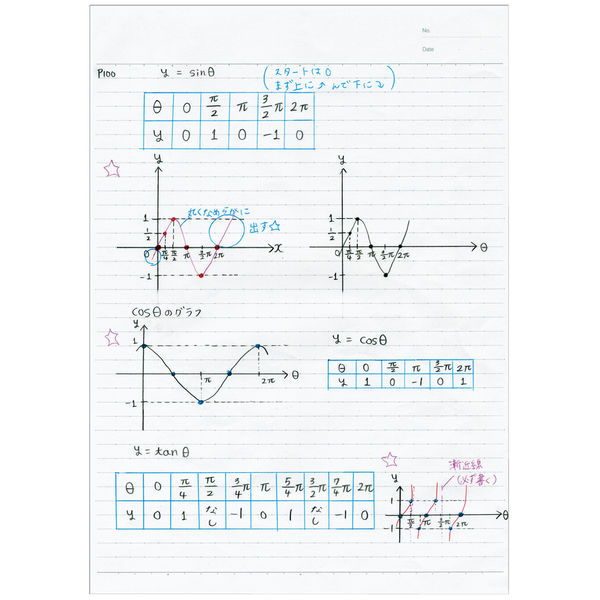 No.
Date
P100 y = sinθ (スタートは0
まず上に
んで下に)
θ 0 π/2 π 3/2π 2π
y 0 1 0 -1 0
y
1
1/2
0 π/4 π/2 π 3/2π 2π x
-1
なめらかに
出す☆
y
1
1/2
0 π/4 π/2 π 3/2π 2π θ
-1
cosθのグラフ
y
1
π 2π θ
-1
y = cosθ
θ 0 π/2 π 3/2π 2π
y 1 0 -1 0 1
y = tanθ
θ 0 π/4 π/2 3/4π π 5/4π 3/2π 7/4π 2π
y 0 1 なし -1 0 1 なし -1 0
漸近線
(必ず書く)
y
1
π/2 π 3/2π 2π θ
-1